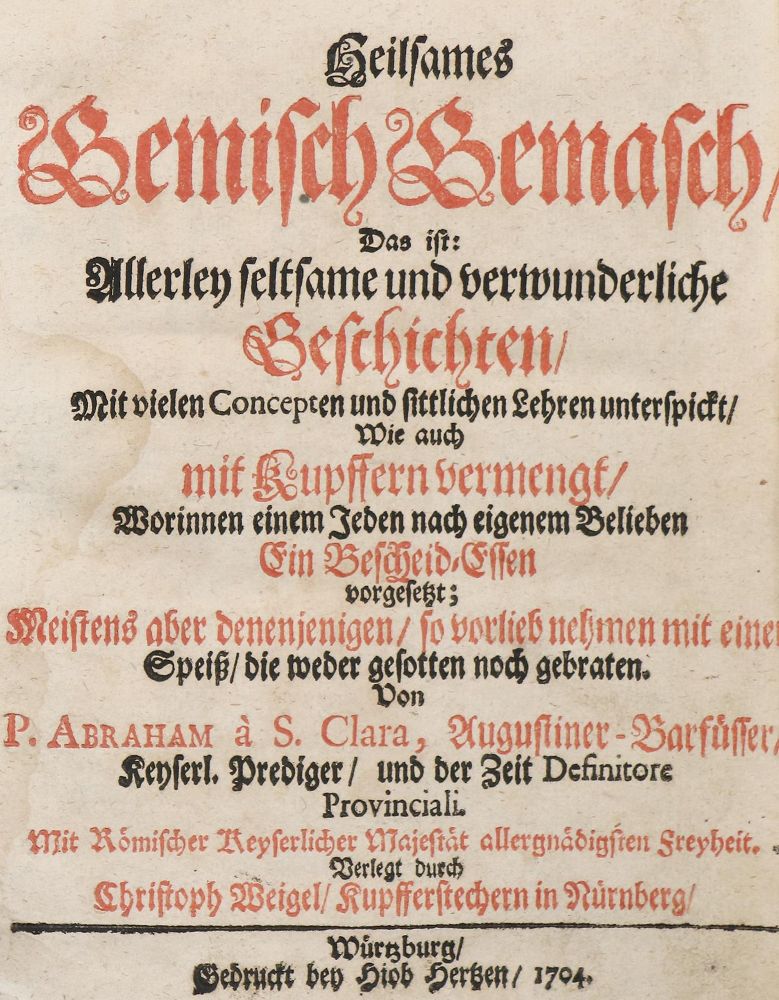 Heilsames
Gemisch Gemasch/
Das ist:
Allerley seltsame und verwunderliche
Geschichten/
Mit vielen Concepten und sittlichen Lehren unterspickt/
Wie auch
mit Kupffern vermengt/
Worinnen einem Jeden nach eigenem Belieben
Ein Bescheid-Essen
vorgesetzt;
Meistens aber denenjenigen/ so vorlieb nehmen mit einer
Speiß/ die weder gesotten noch gebraten.
Von
P. ABRAHAM à S. Clara, Augustiner-Barfüsser/
Keyserl. Prediger/ und der Zeit Definitore
Provinciali.
Mit Römischer Keyserlicher Majestät allergnädigsten Freyheit.
Verlegt durch
Christoph Weigel/ Kupfferstechern in Nürnberg/
Würtzburg/
Gedruckt bey Hiob Hertzen/ 1704.